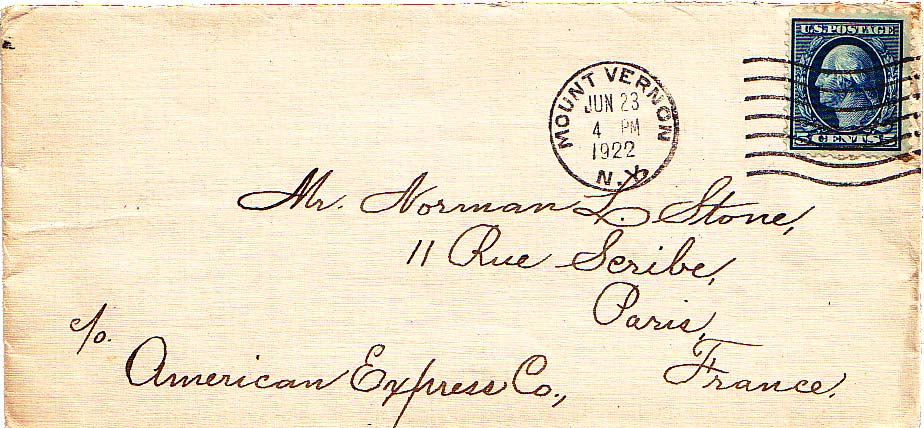 U.S. POSTAGE
5 CENTS 5
MOUNT VERNON
JUN 23
4 PM
1922
N.Y.
Mr. Norman L. Stone,
11 Rue Scribe,
Paris,
France.
c/o.
American Express Co.,